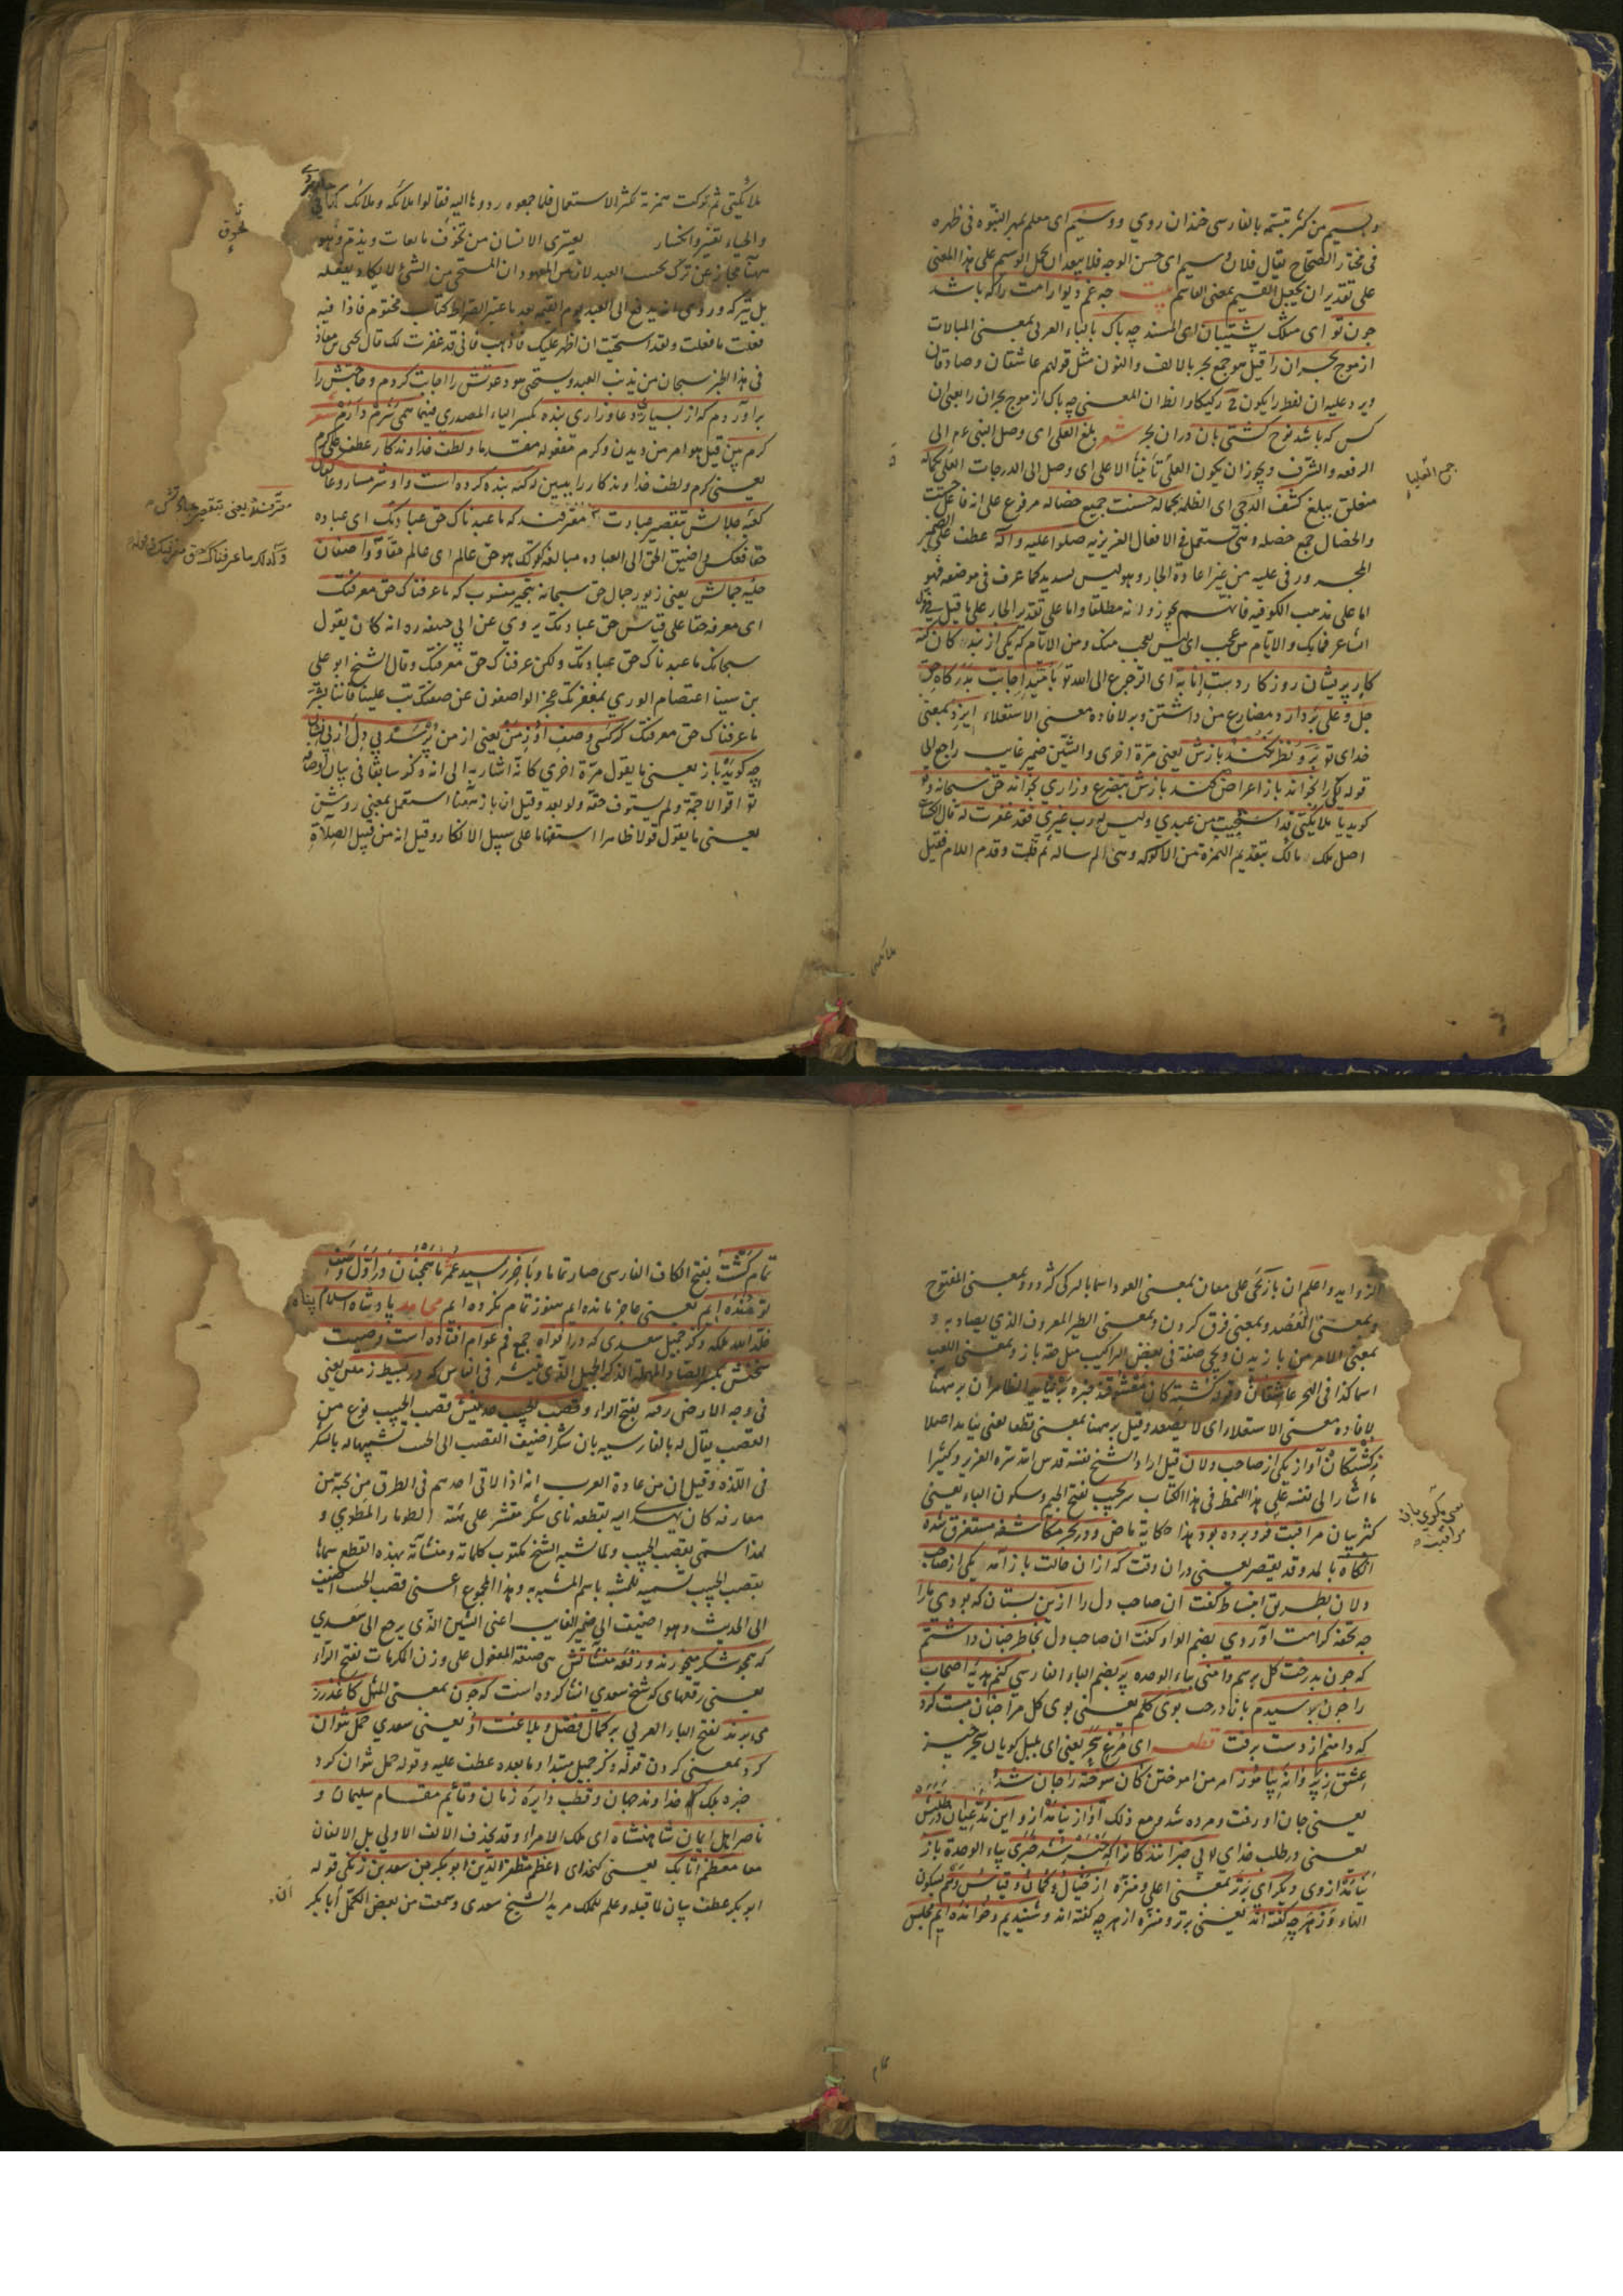 وبسیم من كثر تبسمه بالفارسی خندان روی ووسیم ای معلم بمهر النبوه فی ظهره
فی مختار الصحاح یقال فلان وسیم ای حسن الوجه فلا یبعد ان یحمل الوسیم علی هذا المعنی
علی تقدیر ان یجعل القسیم بمعنی القاسم بیت چه غم دیوار امت را كه باشد
چون تو ای مثلك پشتیبان ای المسند چه باك بالباء العربی بمعنی المبالات
از موج بحر ان را قیل هو جمع بحر بالالف والنون مثل قولهم عاشقان و صادقان
ویرد علیه ان لفط را یكون ركیكا والظ ان المعنی چه باك از موج بحر ان را یعنی ان
كس كه باشد نوح كشتی بان دران بحر شعر بلغ العلی ای وصل النبی ءم الی
الرفعه والشرف ویجوز ان یكون العلی تأنیث الاعلی ای وصل الی الدرجات العلی بكماله
جمع العلیا
متعلق ببلغ كشف الدجی ای الظلمه بجماله حسنت جمیع خصاله مرفوع علی انه فاعل حسنت
والخصال جمع خصله وهی تستعمل فی الافعال الغریزیه صلوا علیه وآله عطف علی الضمیر
المجرور فی علیه من غیر اعادة الجار وهو لیس بسدید كما عرف فی موضعه فهو
اما علی مذهب الكوفیه فانهم یجوزوانه مطلقا واما علی تقدیر الجار علی ما قیل فی قول
الشاعر فما بك والایام من عجب ای لیس بعجب منك ومن الایام كه یكی از بندكان كنه
كار پریشان روزكار دست انابة ای الرجوع الی الله تع بامید اجابت بدركاه حق
جل وعلی بردارد مضارع من داشتن وبر لافاده معنی الاستعلاء ایزد بمعنی
خدای تع برو نظر نكند بازش یعنی مرة اخری والشین ضمیر غایب راجع الی
قوله یكی را بخواند باز اعراض كند بازش بتضرع وزاری بخواند حق سبحانه وتع
كوید یا ملائكتی قد استحییت من عبدی ولیس له رب غیری فقد غفرت له قال
اصل ملك مالك بتقدیم الهمزة من الالوكه وهی الرساله ثم قلبت وقدم اللام فقیل
ملائكتی
ملائكتی ثم تركت همزته لكثرة الاستعمال فلما جمعوه ردوها الیه فقالوا ملائكه وملائك
والحیاء تغیر وانكسار یعتری الانسان من تخوف ما یعاب ویذم وهو
تخوف
ههنا مجاز عن ترك تحسب العبد لان من المعهود ان المستحی من الشئ لا یكاد یفعله
بل یتركه وروی انه یدفع الی العبد یوم القیمه بعد ما عبر الصراط كتاب مختوم فاذا فیه
فعلت ما فعلت ولقد استحییت ان اظهر علیك فاذهب فانی قد غفرت لك قال یحیی بن معاذ
فی هذا الخبر سبحان من یذنب العبد ویستحی هو دعوتش را اجابت كردم وحاجتش را
برآوردم كه از بسیاری دعا وزاری بنده بكسر الیاء المصدری فیهما همی شرم دارم شعر
كرم بین قیل هو امر من دیدن وكرم مفعوله مقدما ولطف خداوندكار عطف علی كرم
یعنی كرم ولطف خداوندكار را ببین كه كنه بنده كرده است واو شرمسار وعاكفان
كعبه جلالش بتقصیر عبادت معترفند كه ما عبدناك حق عبادتك ای عباده
حقا فعكس واضیف الحق الی العباده مبالغه كقولك هو حق عالم ای عالم حقا وواصفان
حلیه جمالش یعنی زیور جمال حق سبحانه بتحیر منسوب كه ما عرفناك حق معرفتك
ای معرفه حقا علی قیاس حق عبادتك یروی عن ابی حنیفه ره انه كان یقول
سبحانك ما عبدناك حق عبادتك ولكن عرفناك حق معرفتك وقال الشیخ ابو علی
بن سینا اعتصام الوری بمغفرتك عجز الواصفون عن صفتك تب علینا فاننا بشر
ما عرفناك حق معرفتك كر كسی وصف او ز من یعنی از من پرسد بی دل از بی نشان
چه كوید باز یعنی ما یقول مرة اخری كانه اشار به الی انه ذكر سابقا فی بیان اوصافه
تع اقوالا جمة ولم یستوف حقه ولو بعد وقیل ان باز ههنا استعمل بمعنی روشن
یعنی ما یقول قولا ظاهرا استفهاما علی سبیل الانكار وقیل انه من قبیل الصلة
الزواید واعلم ان باز یجئ علی معان بمعنی العود اسما بالتركی كرو وبمعنی المفتوح
وبمعنی العضد وبمعنی فرق كردن وبمعنی الطیر المعروف الذی یصاد به و
بمعنی الامر من بازیدن ویجئ صفة فی بعض التراكیب مثل حقه باز وبمعنی اللعب
اسما كذا فی البحر عاشقان وقوله كشتكان معشوقند خبره بر نیاید الظاهر ان بر ههنا
لافاده معنی الاستعلا ای لا یصعد وقیل بر ههنا بمعنی قطعا یعنی نیاید اصلا
ز كشتكان آواز یكی از صاحب دلان قیل اراد الشیخ نفسه قدس الله سره العزیز وكثیرا
ما اشار الی نفسه علی هذا النمط فی هذا الكتاب سر بجیب بفتح الجیم وسكون الیاء یعنی
كریبان مراقبت فرو برده بود هذا حكایة ماض ودر بحر مكاشفه مستغرق شده
انكاه بالمد وقد یقصر یعنی دران وقت كه ازان حالت باز آمد یكی از صاحب
دلان بطریق انبساط كفت ان صاحب دل را ازین بستان كه بودی ما را
چه تحفه كرامت آوردی بضم الواو كفت ان صاحب دل بخاطر چنان داشتم
كه چون بدرخت كل برسم دامنی بیاء الوحده پر بضم الباء الفارسی كنم هدیه اصحاب
را چون برسیدم بانادرخت بوی كلم یعنی بوی كل مرا چنان مست كرد
كه دامنم از دست برفت قطعه ای مرغ سحر یعنی ای بلبل كویان سحر خیز
عشق ز پروانه بیاموز امر من اموختن كان سوخته را جان شد
یعنی جان او رفت ومرده شد ومع ذلك آواز نیامد از و این مدعیان در طلبش
یعنی در طلب خدای تع بی خبرانند كانرا كه خبر شد خبری بیاء الوحدة باز
نیامد از وی دیكر ای برتر بمعنی اعلی ومنزه از خیال وكمان وقیاس ووهم بسكون
الهاء وز هر چه كفته اند یعنی برتر ومنزه از هر چه كفته اند وشنیدیم وخوانده ایم مجلس
تمام
تمام كشت بفتح الكاف الفارسی صار تماما وبآخر رسید عمر ما همچنان در اول وصف
تو مانده ایم یعنی عاجز مانده ایم هنوز تمام نكرده ایم محامد پادشاه اسلام پناه
خلد الله ملكه ذكر جمیل سعدی كه در افواه جمع فم عوام افتاده است وصیت
سخنش بكسر الصاد المهملة الذكر الجمیل الذی ینتشر فی الناس كه در بسیط زمین یعنی
فی وجه الارض رفته بفتح الراء وقصب الجیب حدیثش قصب الجیب نوع من
القصب یقال له بالفارسیه بان شكر اضیف القصب الی الجیب تشبیها له بالسكر
فی اللذه وقیل ان من عادة العرب انه اذا لاقی احدهم فی الطرق من یحبه من
معارفه كان یهدی الیه بقطعه نای شكر مقشر علی هیئة الطومار المطوی و
لهذا سمی بقصب الجیب ولما شبه الشیخ مكتوب كلماته ومنشآته بهذه القطع سماها
بقصب الجیب تسمیه للمشبه باسم المشبه به وهذا المجموع اعنی قصب الجیب اضیف
الی الحدیث وهو اضیف الی ضمیر الغایب اعنی الشین الذی یرجع الی سعدی
كه همچو شكر میخورند ورقعه منشآتش هی صیغة المفعول علی وزن المكرمات بفتح الراء
یعنی رقعهای كه شیخ سعدی انشا كرده است كه چون بمعنی المثل كاغذ زر
می برند بفتح الباء العربی بر كمال فضل وبلاغت او یعنی سعدی حمل نتوان
كرد بمعنی كردن قوله ذكر جمیل مبتدا وما بعده عطف علیه وقوله حمل نتوان كرد
خبره بلكه خداوند جهان وقطب دایره زمان وقائم مقام سلیمان و
ناصر اهل ایمان شاهنشاه ای ملك الامراء وقد یحذف الالف الاولی بل الالفان
معا معظم اتابك یعنی كتخدای اعظم مظفر الدین ابو بكر بن سعد بن زنكی قوله
ابو بكر عطف بیان لما قبله وعلم للملك مرید الشیخ سعدی وسمعت من بعض الكمل أبا بكر